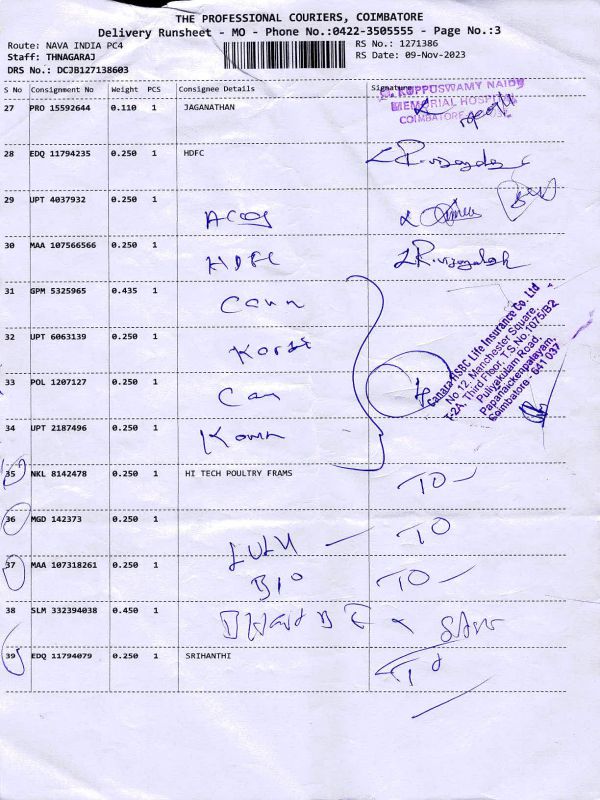 THE PROFESSIONAL COURIERS, COIMBATORE
Delivery Runsheet - MO - Phone No.:0422-3505555 - Page No.:3
Route: NAVA INDIA PC4 RS No.: 1271386
Staff: THNAGARAJ RS Date: 09-Nov-2023
DRS No.: DCJB127138603
S No Consignment No Weight PCS Consignee Details Signature
KUPPUSWAMY NAIDU
MEMORIAL HOSPITAL
COIMBATORE
27 PRO 15592644 0.110 1 JAGANATHAN
28 EDQ 11794235 0.250 1 HDFC
29 UPT 4037932 0.250 1
30 MAA 107566566 0.250 1 HDFC
31 GPM 5325965 0.435 1
32 UPT 6063139 0.250 1
33 POL 1207127 0.250 1
34 UPT 2187496 0.250 1
Canara HSBC Life Insurance Co. Ltd
No.12, Manchester Square,
T-2A, Third Floor, T.S.No.1075/B2
Puliyakulam Road,
Papanaickenpalayam,
Coimbatore - 641 037
35 NKL 8142478 0.250 1 HI TECH POULTRY FRAMS TO
36 MGD 142373 0.250 1 LULU TO
37 MAA 107318261 0.250 1 BIO TO
38 SLM 332394038 0.450 1
39 EDQ 11794079 0.250 1 SRIHANTHI TO